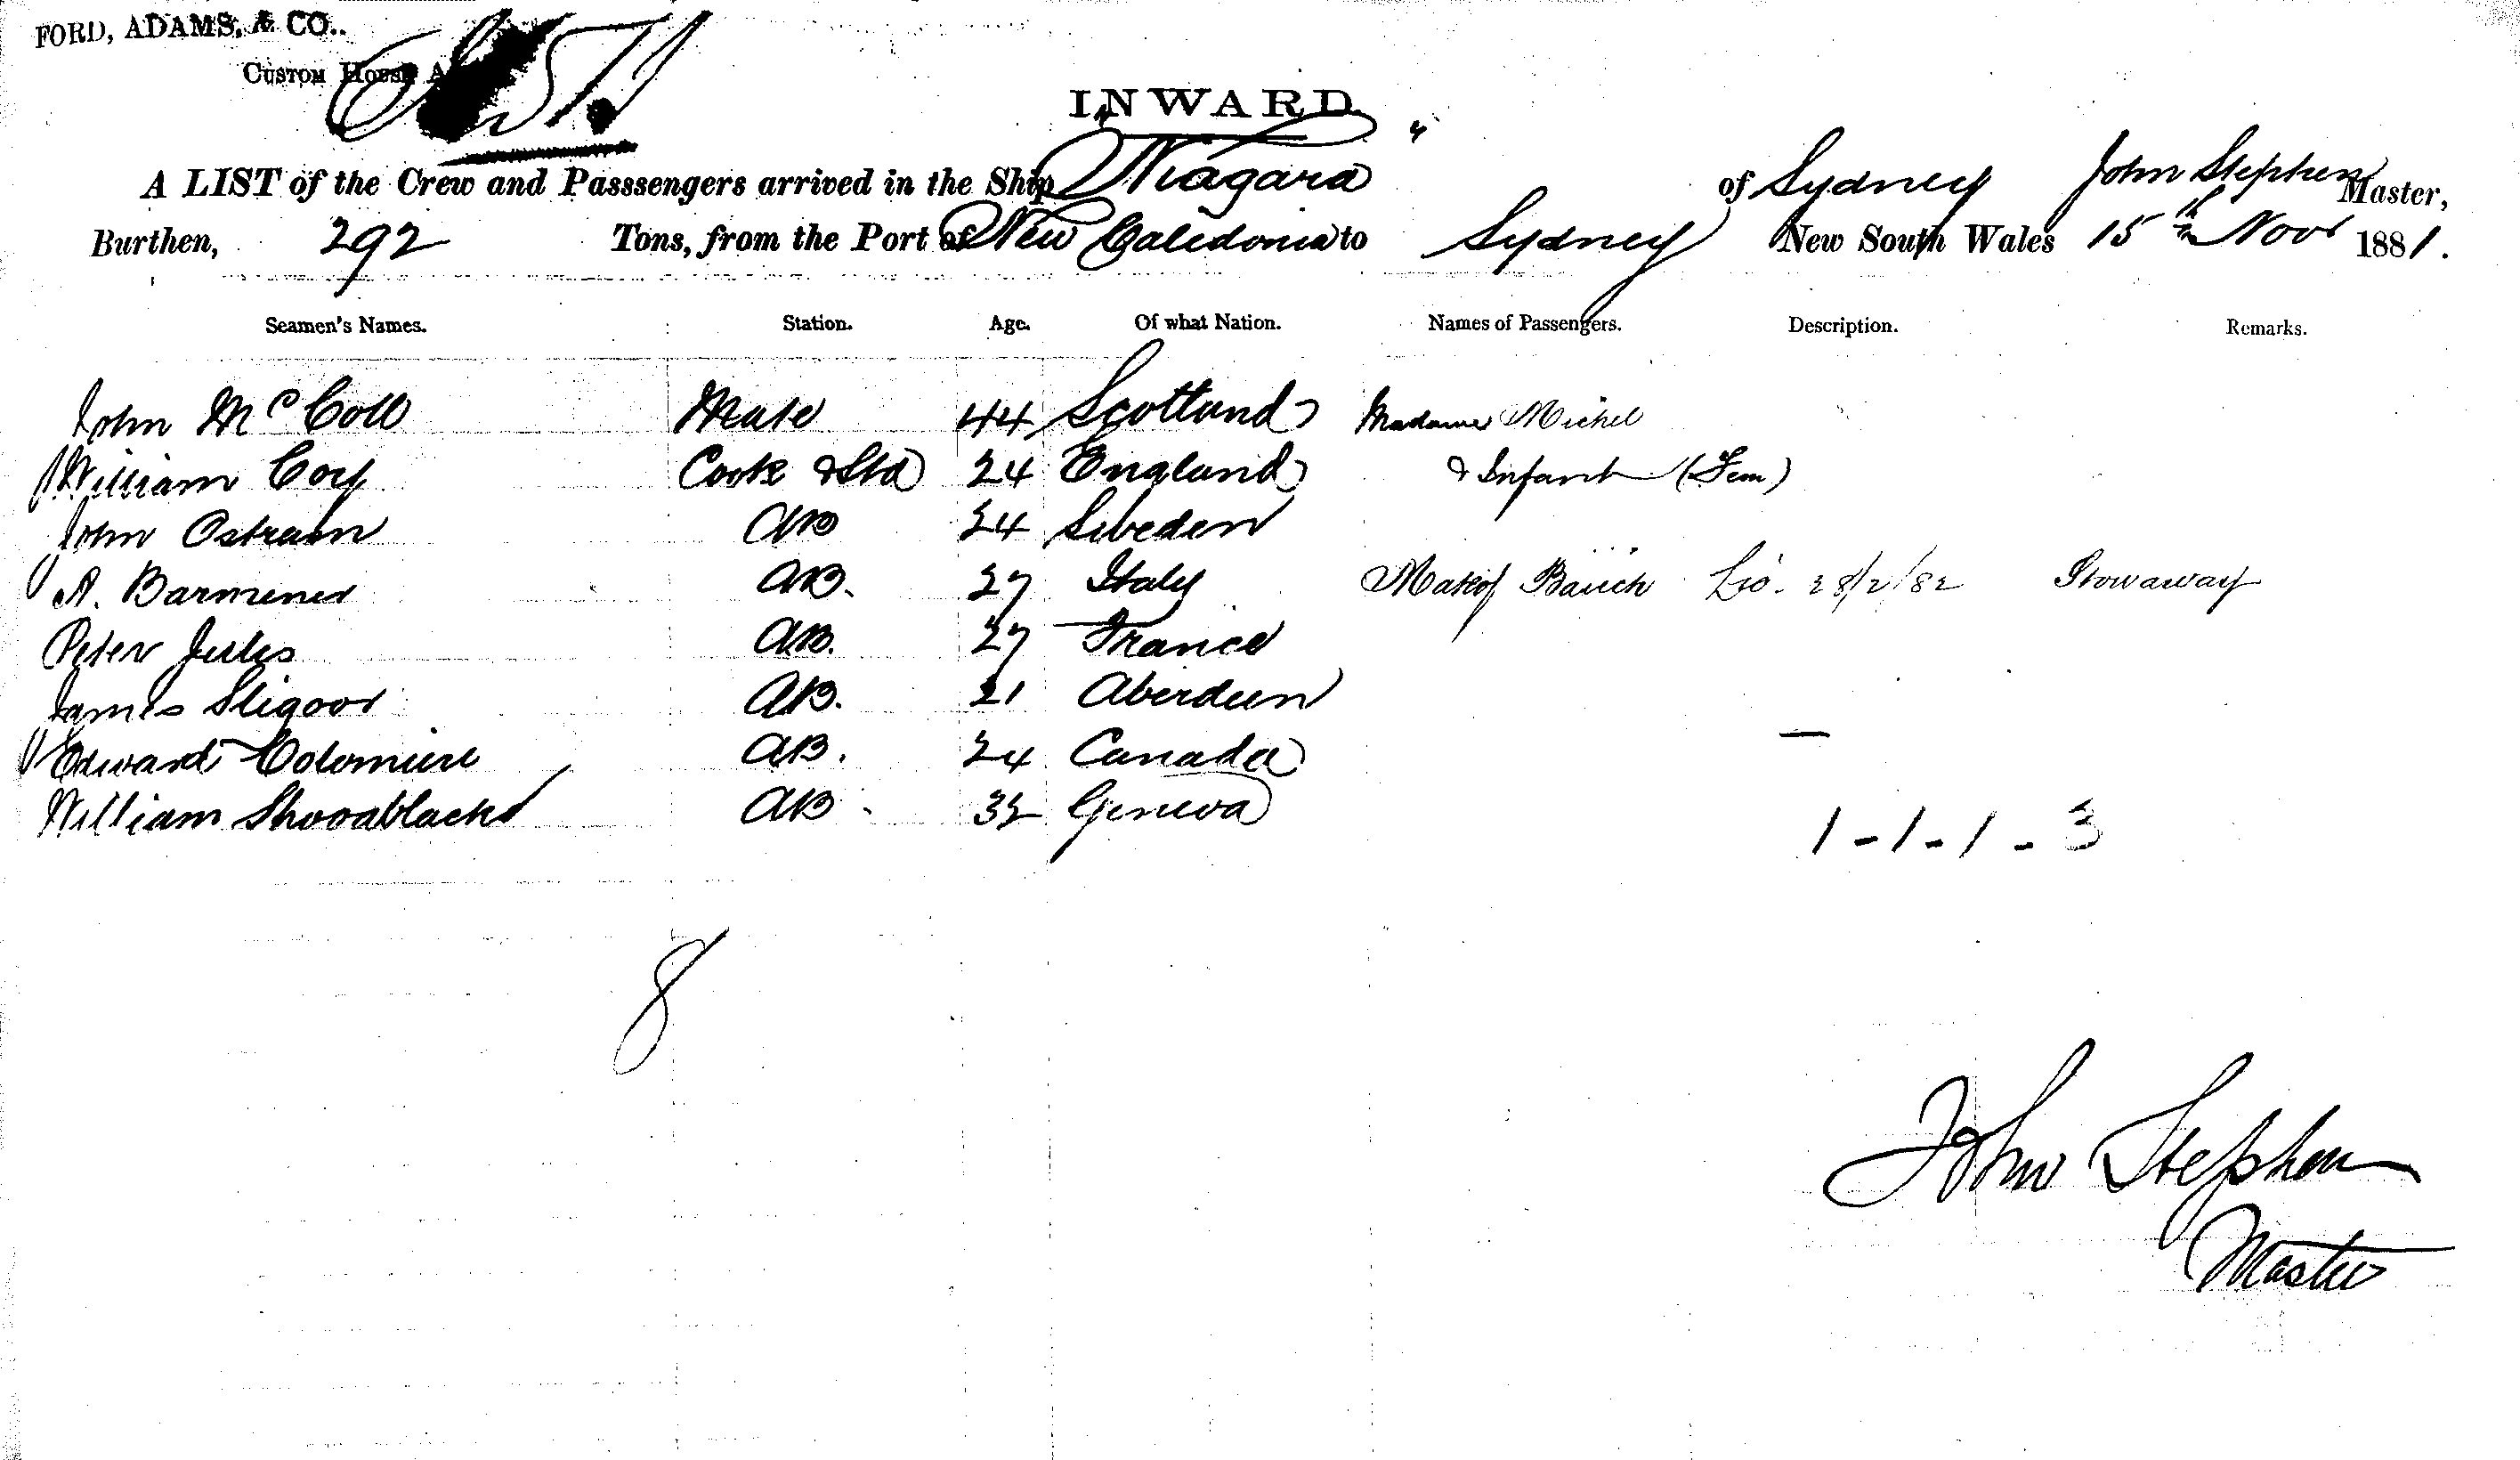 FORD, ADAMS, & CO.,
CUSTOM HOUSE
INWARD.
A LIST of the Crew and Passsengers arrived in the Ship "Niagara" of Sydney John Stephen Master,
Burthen, 292 Tons, from the Port of New Caledonia to Sydney New South Wales 15th Novr 1881.
Seamen's Names. Station. Age. Of what Nation. Names of Passengers. Description. Remarks.
John McColl Mate 44 Scotland Madame Michel
William Coy Cook & Std 24 England & Infant (Fem)
John Ostrain AB 24 Sweden
A. Barmener AB. 27 Italy Stowaway
Peter Jules AB. 27 France
James Sligoor AB. 21 Aberdeen
Edward Colomiere AB. 24 Canada
William AB 32 Geneva
1 - 1 - 1 - 3
8
John Stephen
Master